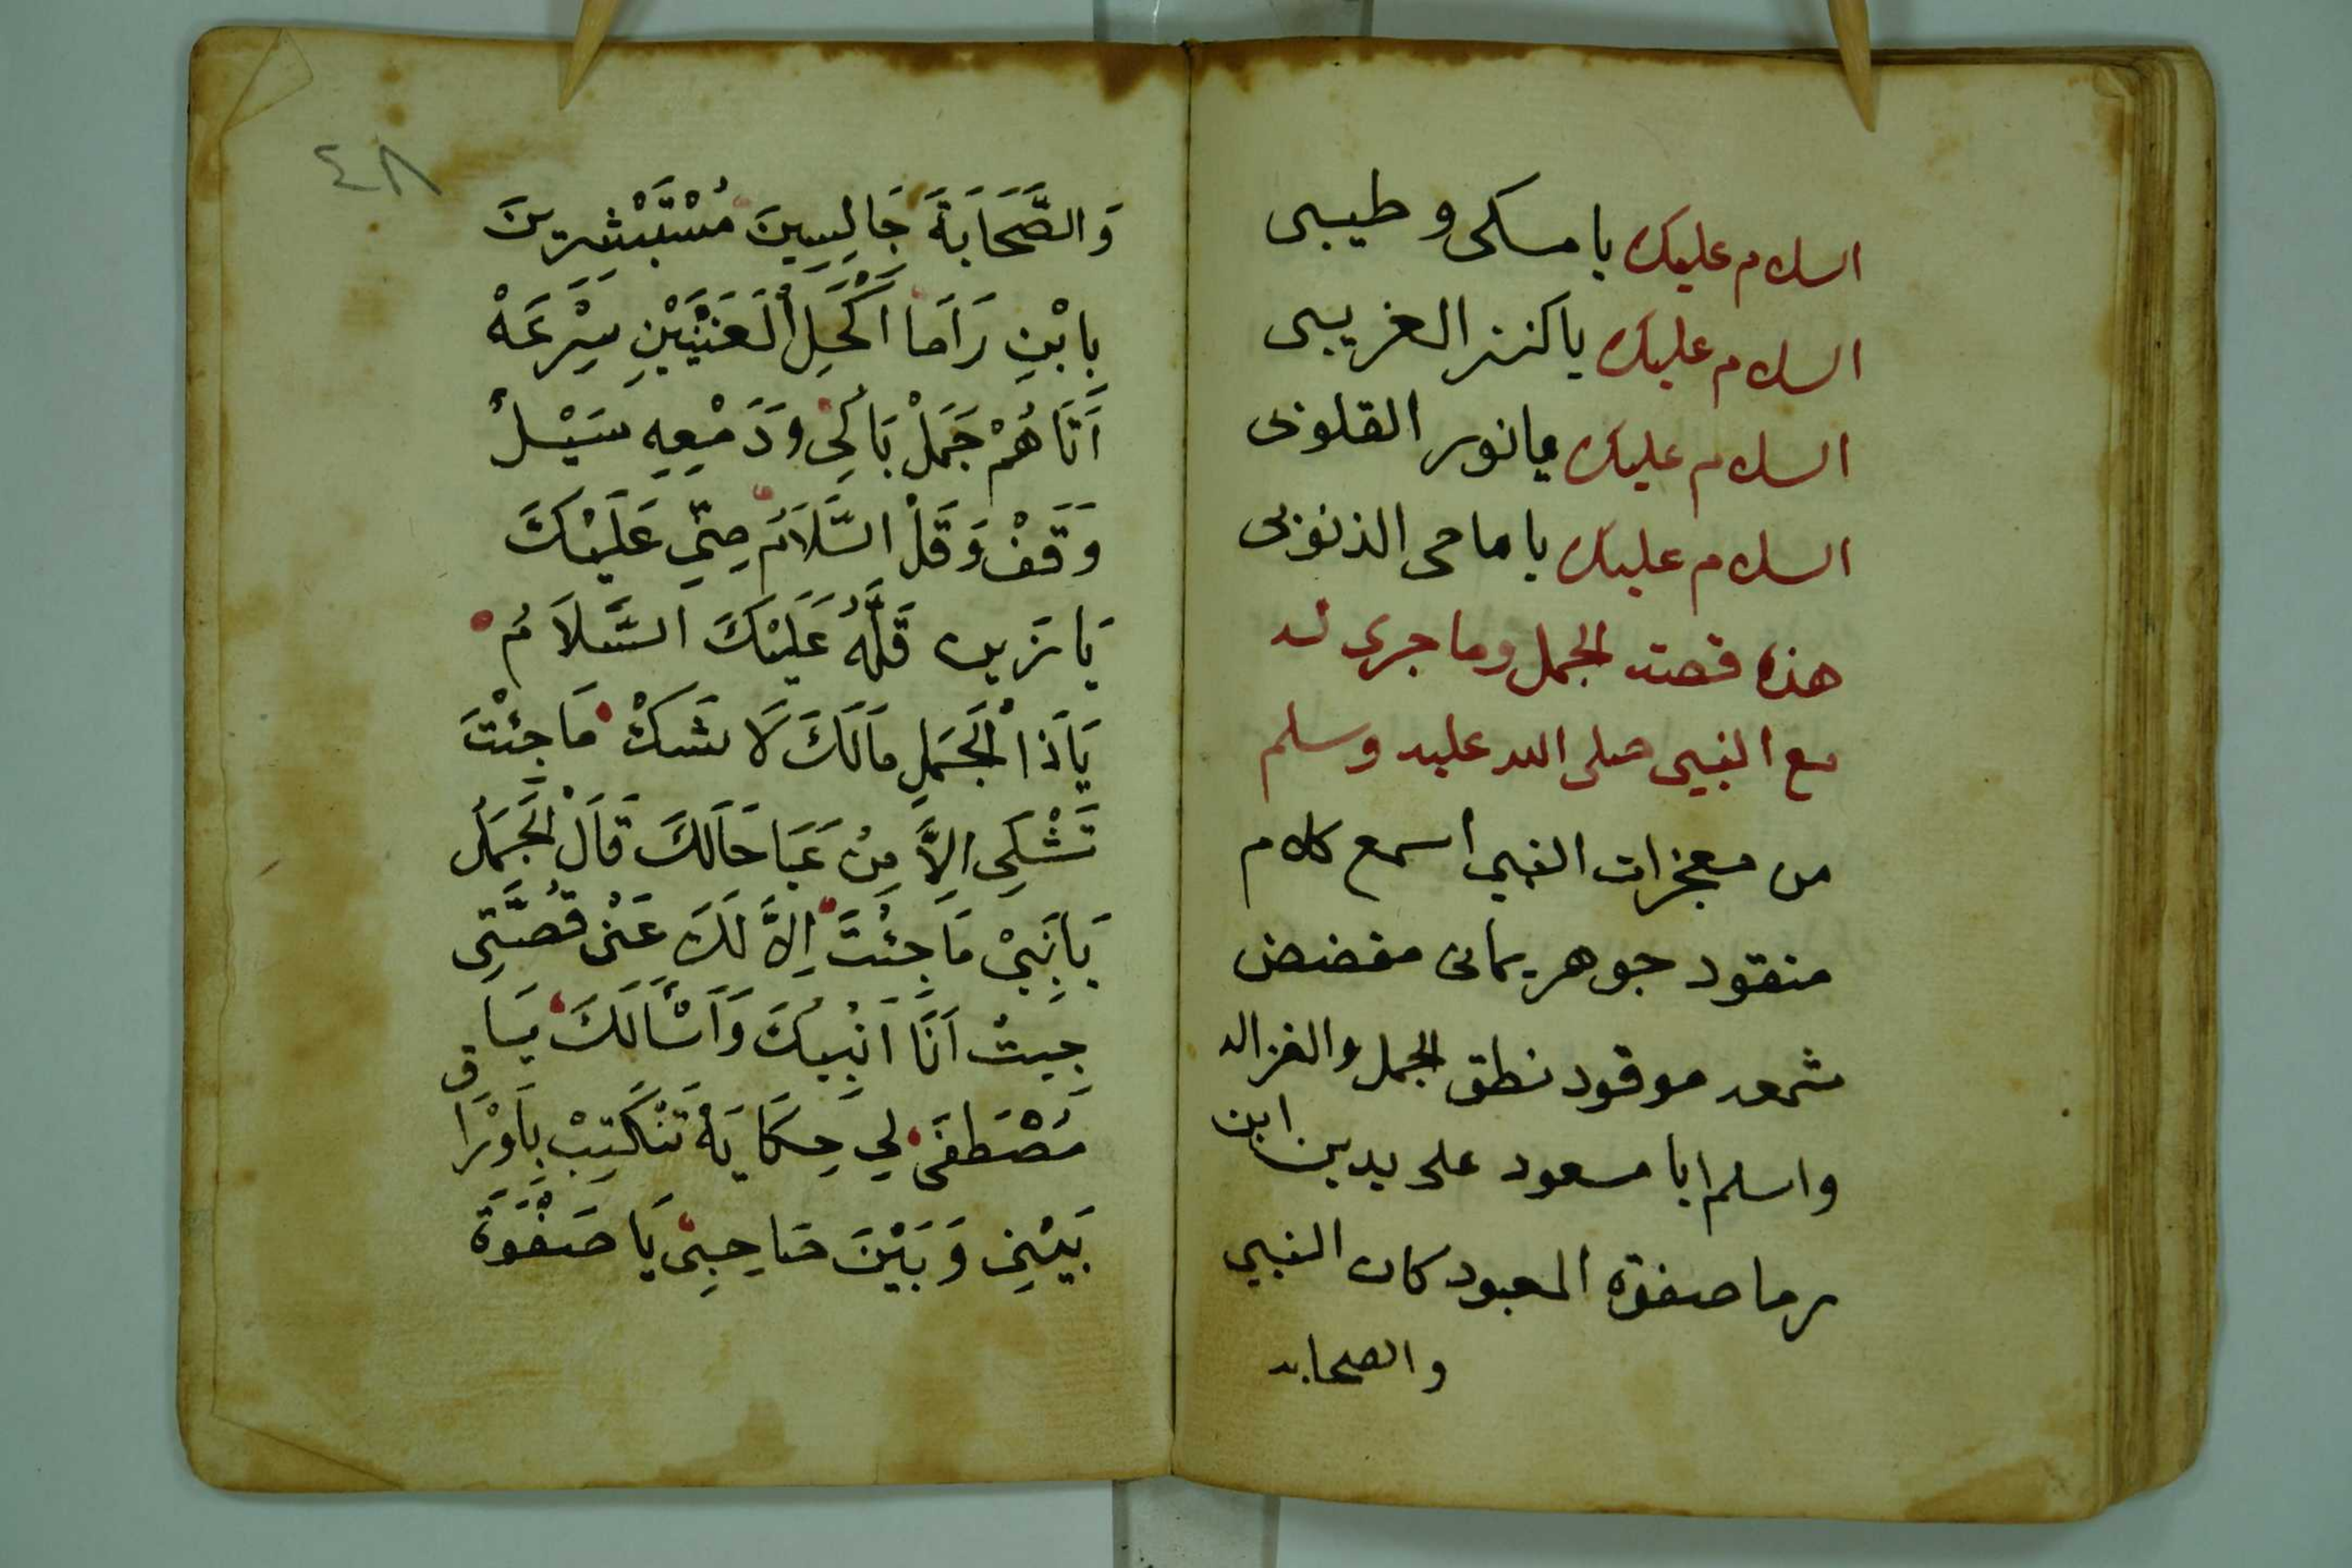 السلام عليك يا مسكى و طيبى
السلام عليك يا كنز الغريبى
السلام عليك يا نور القلوبى
السلام عليك يا ماحى الذنوبى
هذه قصة الجمل وما جرى له
مع النبى صلى الله عليه وسلم
من معجزات النبي اسمع كلام
منقود جوهر يمانى مفضض
شمعه موقود نطق الجمل والغزاله
واسلم ابا مسعود على يدين ابن
رما صفوة المعبود كان النبي
والصحابه
٤٨
وَالصَّحَابَةَ جَالِسِينَ مُسْتَبْشِرِينَ
بِابْنِ رَامَا اَكْحَلِ الْعَنَيْنَيْنِ سِرْعَهْ
اَتَاهُمْ جَمَلْ بَاكِى وَدَمْعِهِ سَيْلْ
وَقَفْ وَقَلْ السَّلَامُ مِنِّي عَلَيْكَ
يَا زين قَلَّهُ عَلَيْكَ السَّلَامُ
يَاذَا الْجَمَلِ مَالَكَ لَا شَكْ مَا جِئْتَ
تَشْكِى اِلاَّ مِنْ عَبَا حَالَكَ قَالَ الْجَمَلُ
يَا نَبِيْ مَا جِئْتَ اِلاَّ لَكَ عَنْ قُصَّتِى
جِيتْ اَنَا اَنْبِيكَ وَاَسْاَلَكَ يَا
مُصْطَفَى لِي حِكَايَهْ تَنْكَتِبْ بِاَوْرَاق
بَيْنِى وَبَيْنَ صَاحِبِى يَا صَفْوَةَ